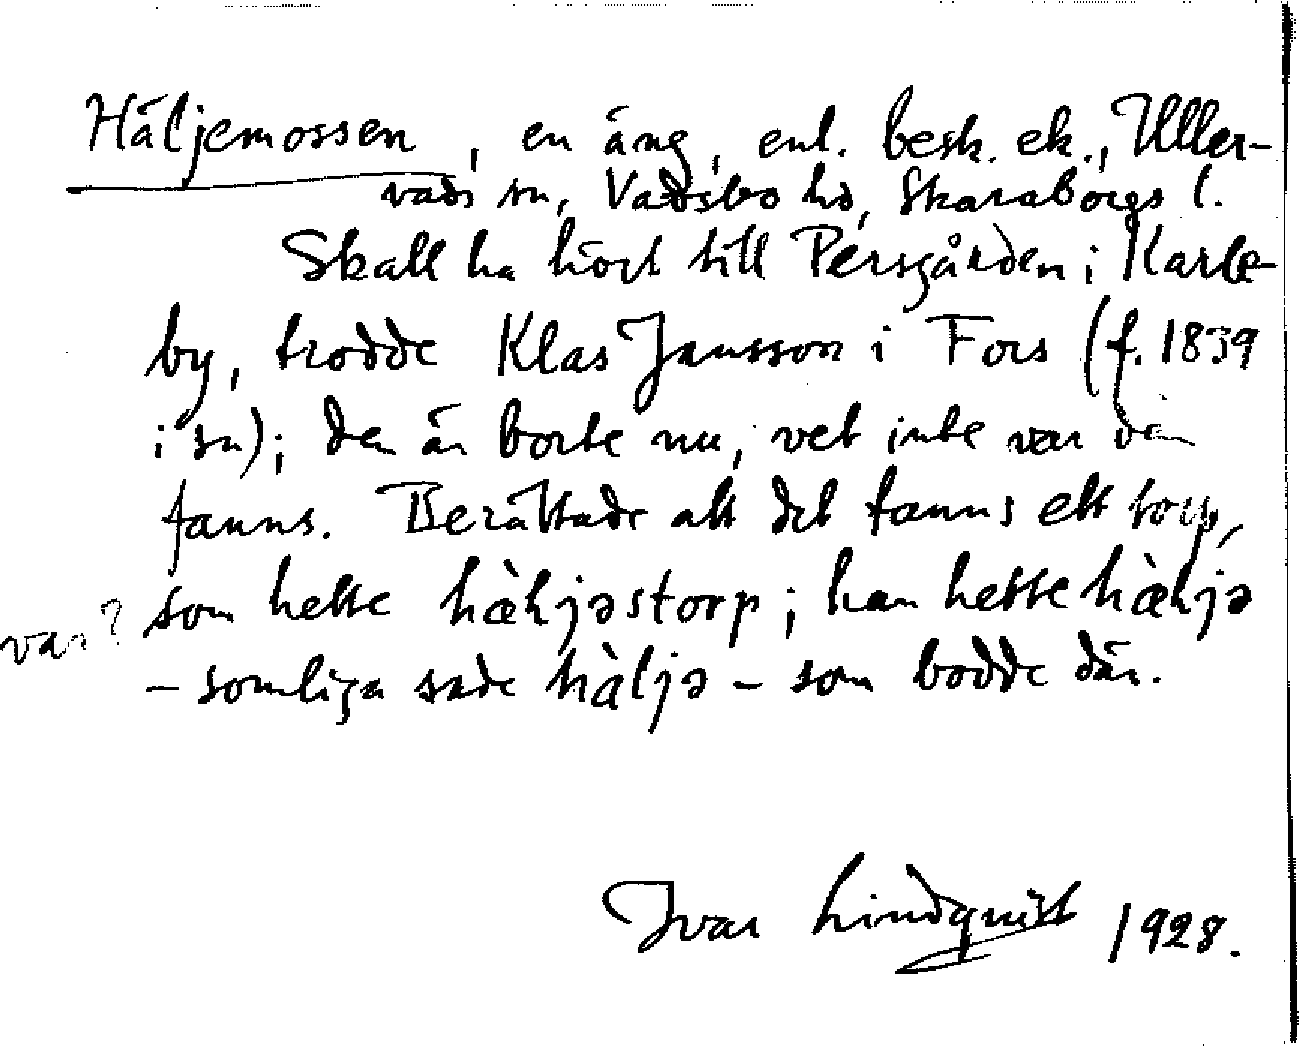 Häljemossen, en äng, enl. besk. ek., Uller-
vads sn, Vadsbo hd, Skaraborgs l.
Skall ha hört till Persgården i Karle-
by, trodde Klas Jansson i Fors (f. 1839
i sn); den är borte nu, vet inte var den
fanns. Berättade att det fanns ett torp,
som hette hæ̀ljəstorp; han hette hæ̀ljə
var?
– somliga sade hàljə – som bodde där.
Ivar Lindquist 1928.